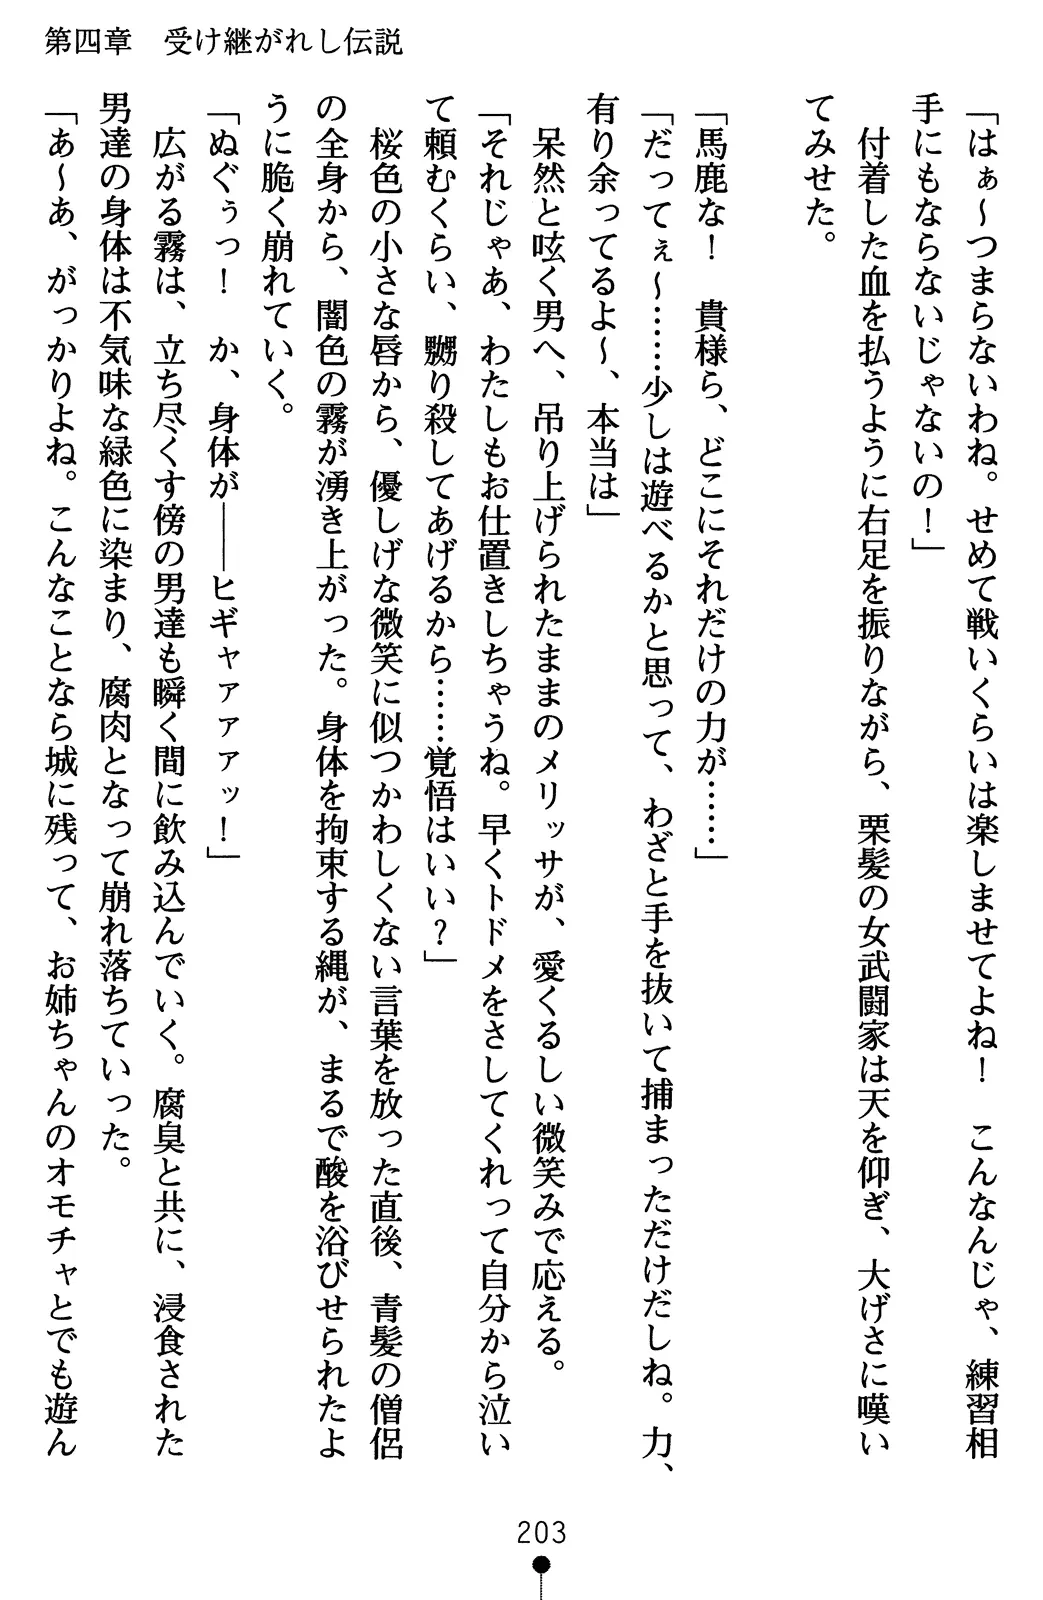 第四章　受け継がれし伝説
「はぁ～つまらないわね。せめて戦いくらいは楽しませてよね！　こんなんじゃ、練習相
手にもならないじゃないの！」
　付着した血を払うように右足を振りながら、栗髪の女武闘家は天を仰ぎ、大げさに嘆い
てみせた。
「馬鹿な！　貴様ら、どこにそれだけの力が……」
「だってぇ～……少しは遊べるかと思って、わざと手を抜いて捕まっただけだしね。力、
有り余ってるよ～、本当は」
　呆然と呟く男へ、吊り上げられたままのメリッサが、愛くるしい微笑みで応える。
「それじゃあ、わたしもお仕置きしちゃうね。早くトドメをさしてくれって自分から泣い
て頼むくらい、嬲り殺してあげるから……覚悟はいい？」
　桜色の小さな唇から、優しげな微笑に似つかわしくない言葉を放った直後、青髪の僧侶
の全身から、闇色の霧が湧き上がった。身体を拘束する縄が、まるで酸を浴びせられたよ
うに脆く崩れていく。
「ぬぐぅっ！　か、身体が――ヒギャァァァッ！」
　広がる霧は、立ち尽くす傍の男達も瞬く間に飲み込んでいく。腐臭と共に、浸食された
男達の身体は不気味な緑色に染まり、腐肉となって崩れ落ちていった。
「あ～あ、がっかりよね。こんなことなら城に残って、お姉ちゃんのオモチャとでも遊ん
203